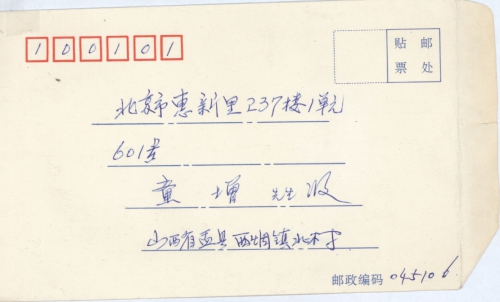 100101
贴 邮
票 处
北京市惠新里237楼1单元
601号
童增 先生 收
山西省盂县西烟镇北村
邮政编码 045106